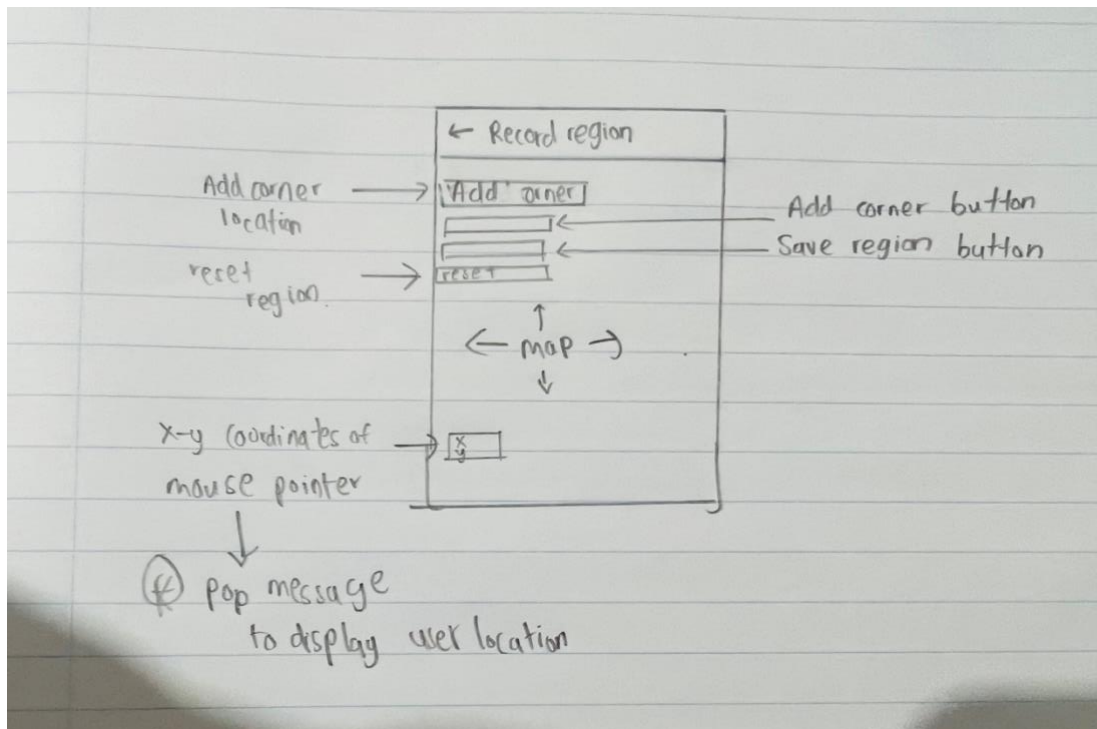 ← Record region
Add corner
location
"Add" orner
Add corner button
Save region button
reset
region.
reset
← map →
X-y Coordinates of
mouse pointer
x
y
pop message
to display user location